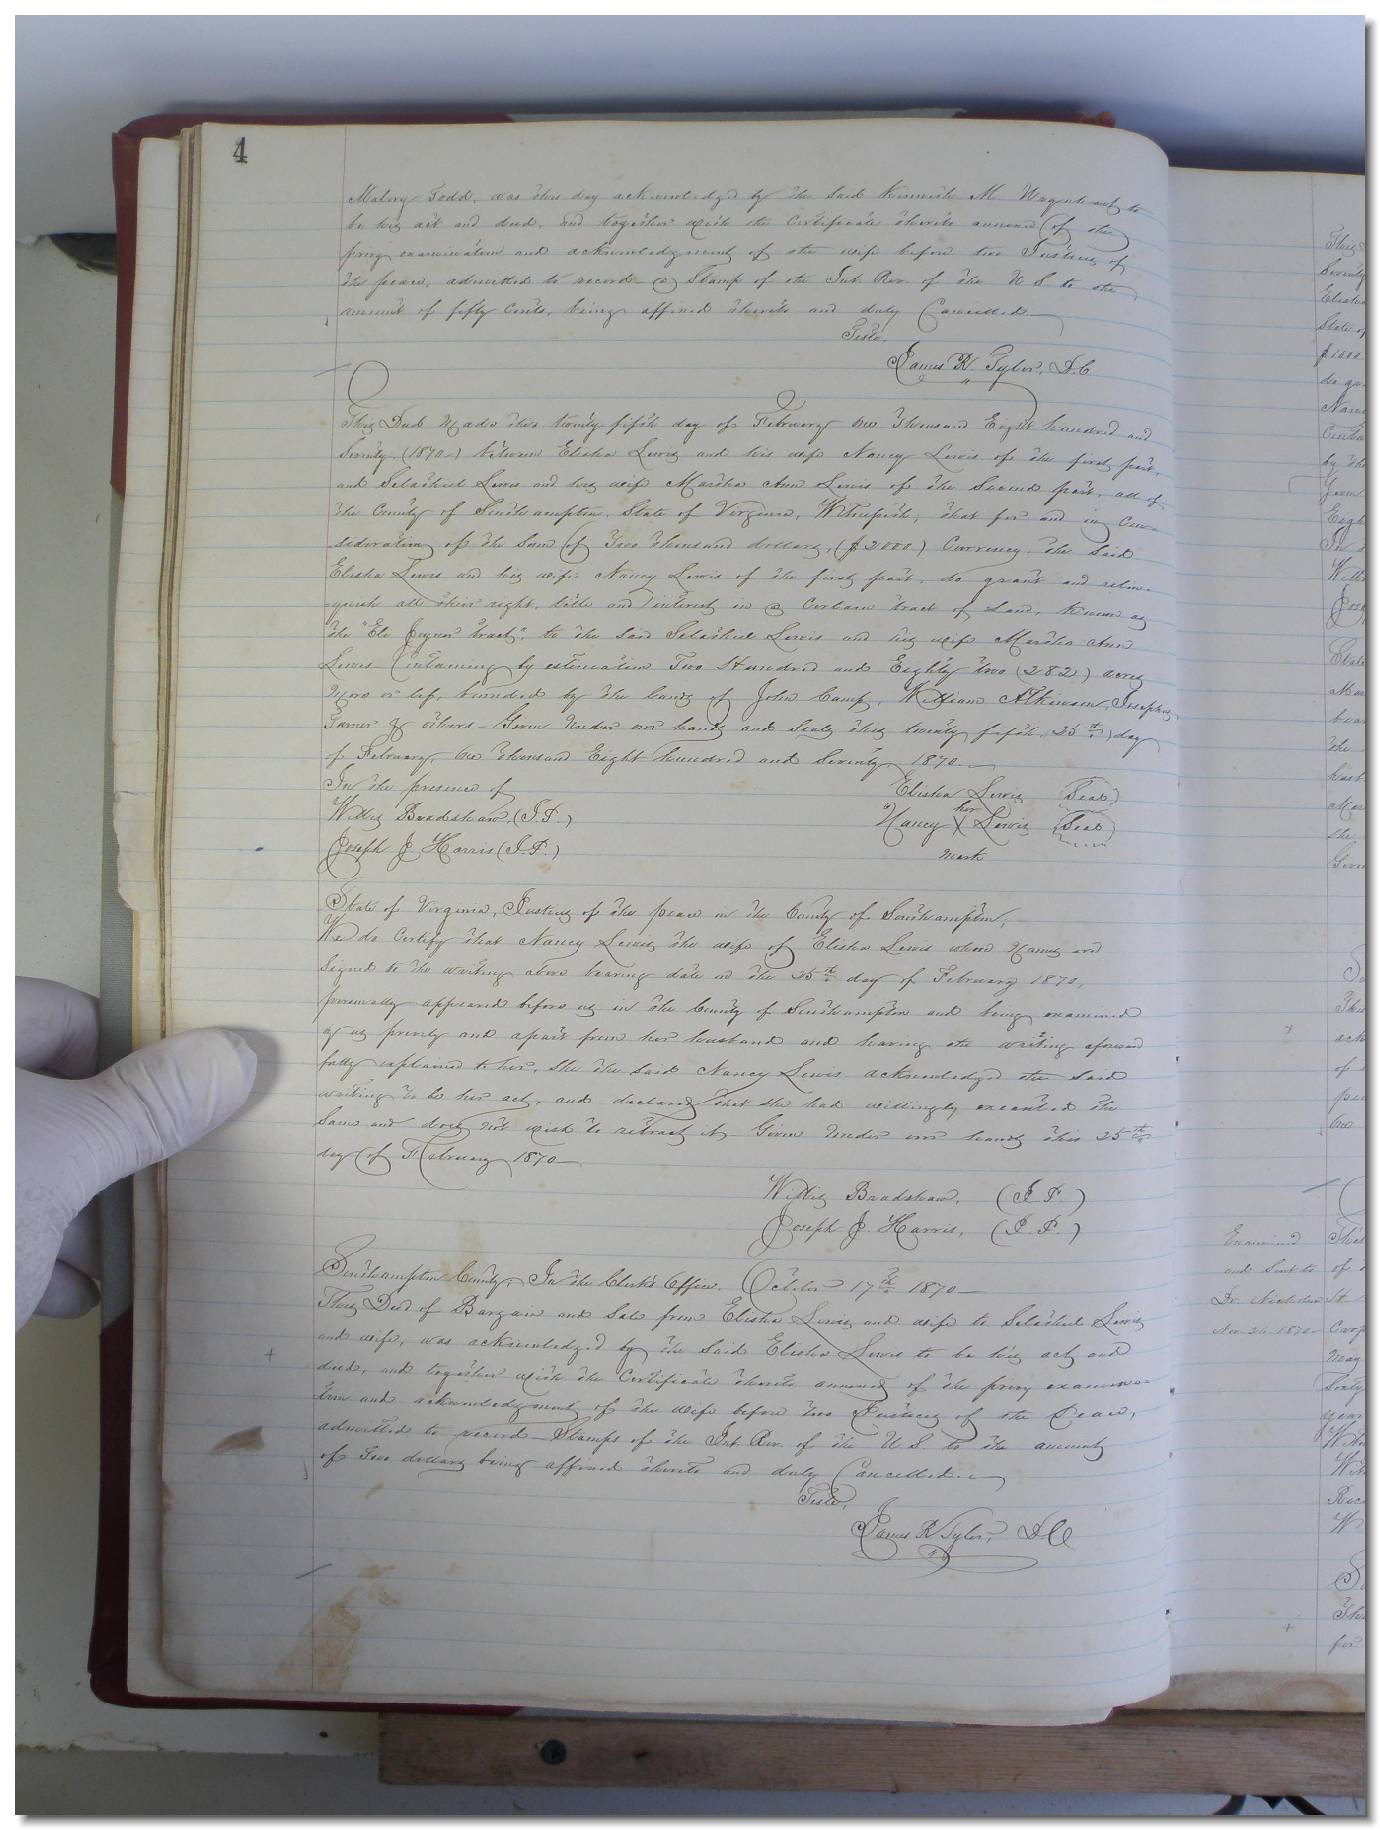 4
Malory Todd, was this day acknowledged by the said M. to
be his act and deed, and together with the Certificate thereto annexed of the
privy examination and acknowledgment of the wife before two Justices of
the peace, admitted to record a Stamp of the Int. Rev. of the U S. to the
amount of fifty Cents, being affixed thereto and duly Cancelled
Teste,
James R. Tyler, D.C
This Deed Made this twenty fifth day of February One Thousand Eight hundred and
Seventy (1870) between Elisha Lewis and his wife Nancy Lewis of the first part,
and Lewis and his wife Martha Ann Lewis of the Second part, all of
the County of Southampton, State of Virginia, Witnesseth, that for and in Con-
sideration of the Sum of Two thousand dollars, ($2000.) Currency, the Said
Elisha Lewis and his wife Nancy Lewis of the first part, do grant and relin-
-quish all their right, title and interest in a Certain tract of Land, Known as
the "Eli Joyner tract", to the Said Lewis and his wife Martha Ann
Lewis Containing by estimation Two Hundred and Eighty two (282) acres
More or less, bounded by the lands of John Camp, William Atkinson, Josephus
& others - Given Under our hands and Seals this twenty fifth, 25th, day
of February, One thousand Eight hundred and Seventy 1870.
In the presence of
Elisha Lewis (Seal)
Willis Bradshaw, (J.P.)
her
Nancy X Lewis (Seal)
Joseph J. Harris (J.P.)
mark
State of Virginia, Justices of the peace in the County of Southampton,
We do Certify that Nancy Lewis the wife of Elisha Lewis whose Names are
Signed to the writing above bearing date on the 25th day of February 1870,
personally appeared before us in the County of Southampton and being examined
by us privily and apart from her husband and having the writing aforesaid
fully explained to her, She the Said Nancy Lewis acknowledged the Said
writing to be her act, and declared that she had willingly executed the
Same and does not wish to retract it. Given Under our hands this 25th
day of February 1870
Willis Bradshaw, (J P.)
Joseph J. Harris, (J. P.)
Southampton County, In the Clerk's Office, October 17th 1870
This Deed of Bargain and Sale from Elisha Lewis and wife to Lewis
and wife, was acknowledged by the Said Elisha Lewis to be his act and
deed, and together with the Certificate thereto annexed of the privy examina-
tion and acknowledgment of the wife before two Justices of the Peace,
admitted to record Stamps of the Int. Rev. of the U S. to the amount
of Two dollars being affixed thereto and duly Cancelled.
Teste,
James R Tyler, D.C
Examined
and Sent to
Nov. 26 1870